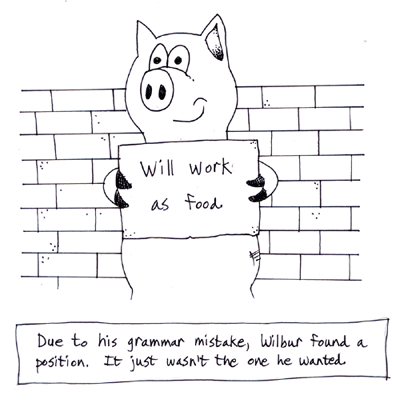 Will work
as food.
Due to his grammar mistake, Wilbur found a
position. It just wasn't the one he wanted.